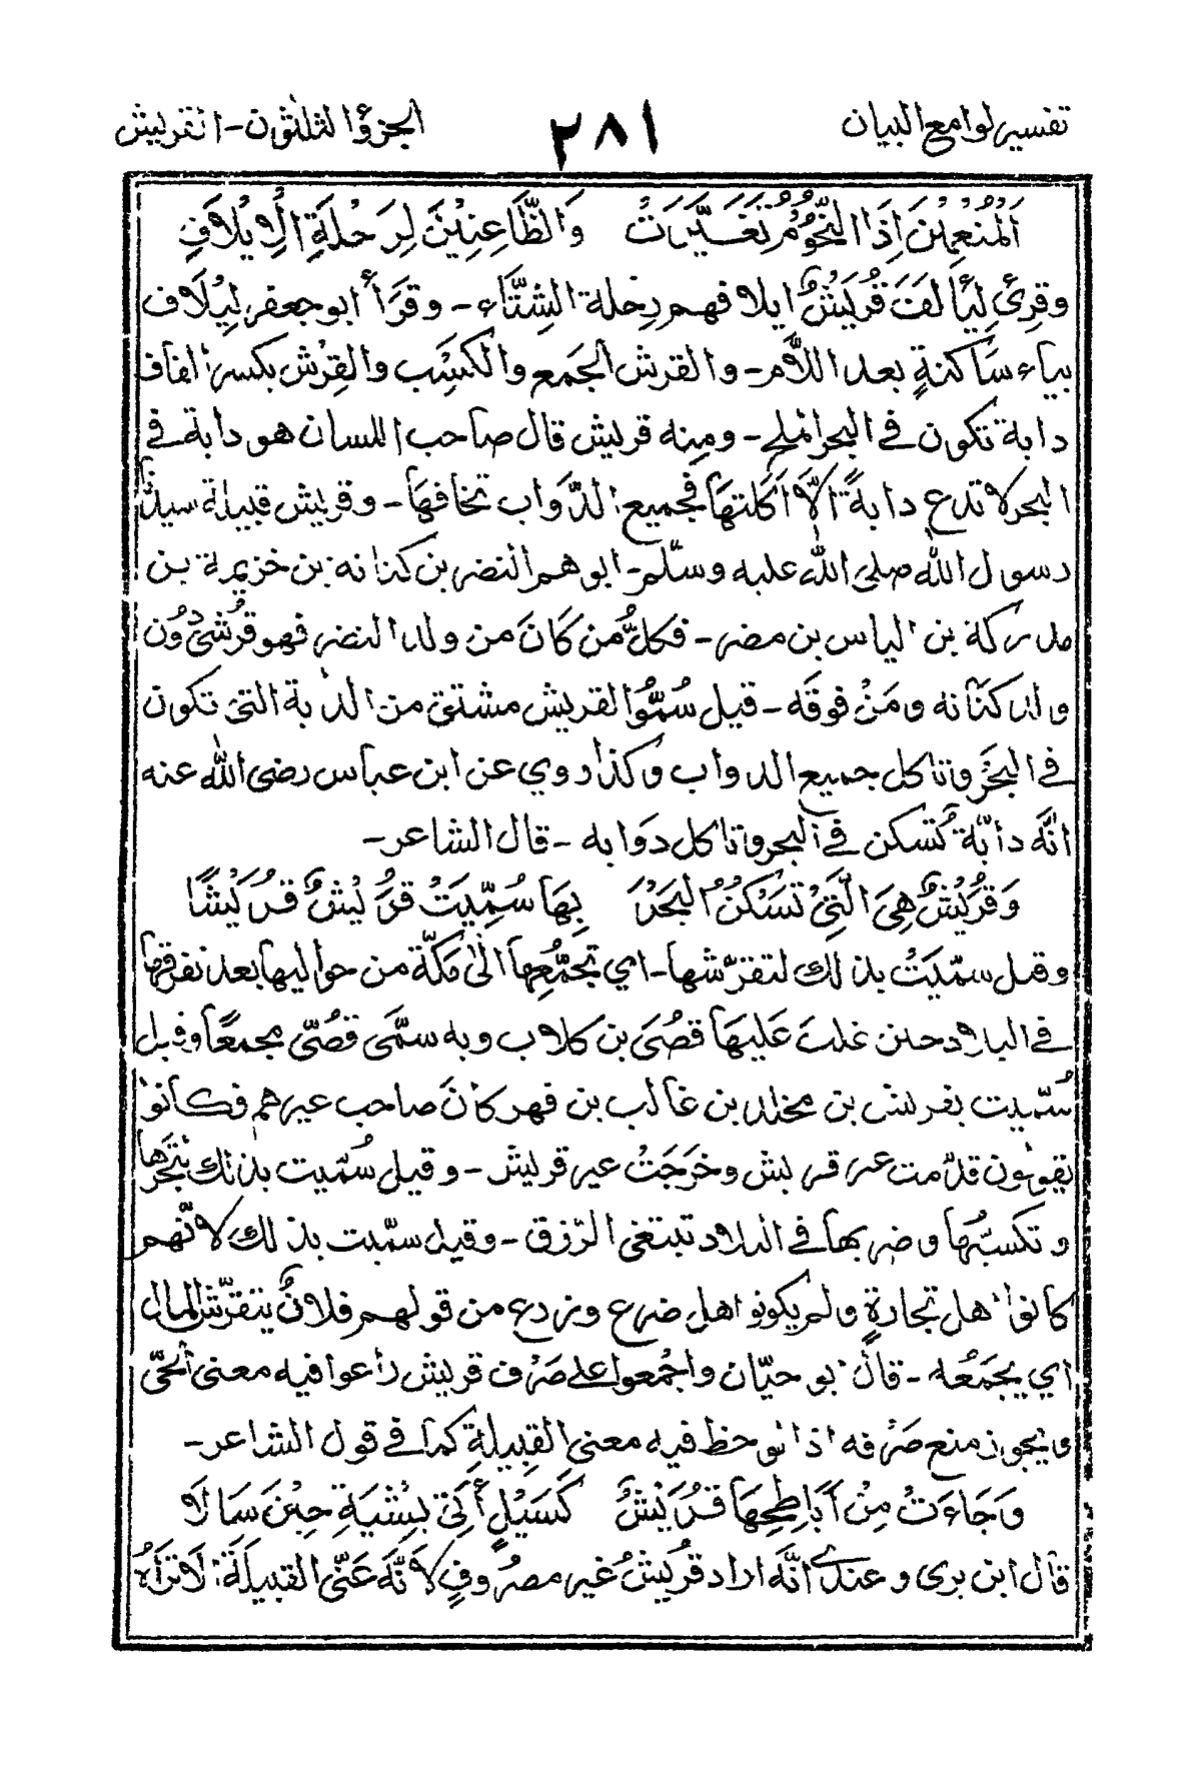 تفسير لوامع البيان ٢٨١ الجزؤ الثلثون - القريش
اَلْمُنْعِمِيْنَ اِذَا النُّجُوْمُ تَغَيَّرَتْ وَالظَّاعِنِيْنَ لِرِحْلَةِ الْاِيْلَافِ
وقرئ لِيَألَفَ قُرَيْشٌ ايلافهم رحلة الشِّتَاء - وقَرَأ ابو جعفر لِيْلَاف
بياء سَاكنةٍ بعد اللاَّم - والقرش الجَمع والكَسْب والقِرْش بكسر القاف
دابة تكون في البحر الملح - ومنه قريش قال صاحب اللسان هو دابة في
البحر لا تدع دابةً الّا اَكَلتهَا فجميع الدَّوَاب تخافهَا - وقريش قبيلة سيدنا
رسول الله صلى الله عليه وسلّم - ابوهم النضر بن كنانه بن خزيمة بن
مدركة بن الياس بن مضر - فكلُّ من كَانَ من ولد النضر فهو قُرَشيٌّ دُون
ولد كنَانه ومَنْ فوقَه - قيل سُمُّوا القريش مشتق من الدابة التي تكون
في البحَر وتاكل جميع الدواب وكذا روي عن ابن عباس رضى الله عنه
انَّه دابّة تُسكن في البحر وتاكل دَوابه - قال الشاعر -
وَقُرَيْشٌ هِيَ الَّتِيْ تَسْكُنُ الْبَحْرَ بِهَا سُمِّيَتْ قُرَيْشٌ قُرَيْشًا
وقيل سمّيَتْ بذلك لتقرّشها - اي تجمُّعِها الى مَكّة من حواليها بعد تفرقها
في البلاد حين غلبَ عَليهَا قصُىَ بن كلاب وبه سمَّى قصُىّ مجمعًا وقيل
سُمّيت بقريش بن مخلد بن غالب بن فهر كانَ صاحب عيرهم فكانوا
يقولون قدّمت عير قريش وخَرَجَتْ عير قريش - وقيل سُمّيت بذلك لتَجْرها
وتكسبُّهَا وضربها في البلاد تبتغى الرّزق - وقيل سمّيت بذلك لانّهم
كانوا اهل تجارةٍ ولم يكونو اهل ضرع وزرع من قولهم فلانٌ يتقرّش المال
اي يجمَعُه - قال ابو حيّان واجْمعوا على صَرْف قريش راعوا فيه معنى الحَىّ
ويجوز منع صَرْفه اذا لوحظ فيه معنى القبيلةِ كمَا في قول الشاعر -
وَجَاءَتْ مِنْ اَبَاطِحِهَا قُرَيْشٌ كَسَيْلٍ أَتِيّ بِيْشَةِ حِيْنَ سَالَا
قال ابن برى وعندى انَّه اراد قُرَيْشُ غير مصرُوفٍ لاَنَّه عَنّى القبيلَةَ: لَاتَرَاهُ